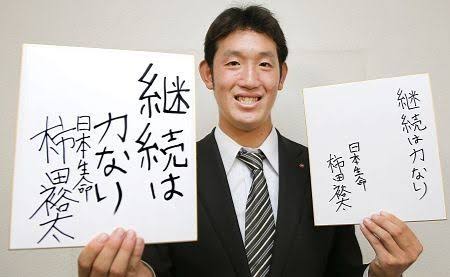 継続は
力なり
日本生命
柿田裕太
継続は力なり
日本生命
柿田裕太